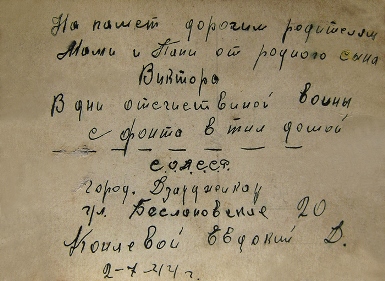 На памет дорогим родителям
Мами и Папи от родного сына
Виктора
В дни отечиствиной воины
с фронта в тил домой
С.О.А.С.С.Р.
город. Дзауджикау
ул. Беслановские 20
Коплевой Евдокий Д.
2-7 44 г.